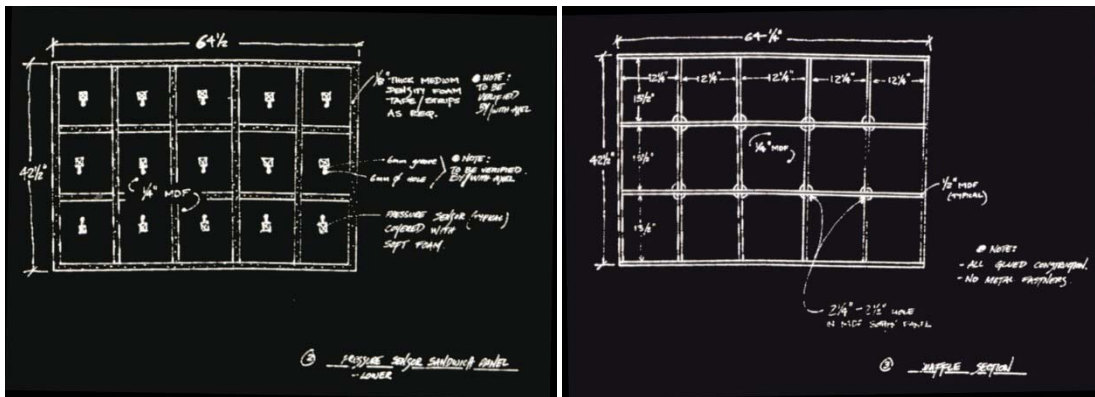 64½
42½"
⅛" THICK MEDIUM
DENSITY FOAM
TAPE/STRIPS
AS REQ.
NOTE:
TO BE
VERIFIED
BY/WITH AXEL
6mm GROOVE
6mm Ø HOLE
NOTE:
TO BE VERIFIED
BY/WITH AXEL
¼" MDF
PRESSURE SENSOR (TYPICAL)
COVERED WITH
SOFT FOAM.
② PRESSURE SENSOR SANDWICH PANEL
-LOWER
64-¼"
12¼" 12¼" 12¼" 12¼" 12¼"
13½"
42½"
¼" MDF
13½"
½" MDF
(TYPICAL)
13½"
NOTE:
- ALL GLUED CONSTRUCTION.
- NO METAL FASTNERS.
2¼" - 2½" HOLE
IN MDF PANEL
BAFFLE SECTION